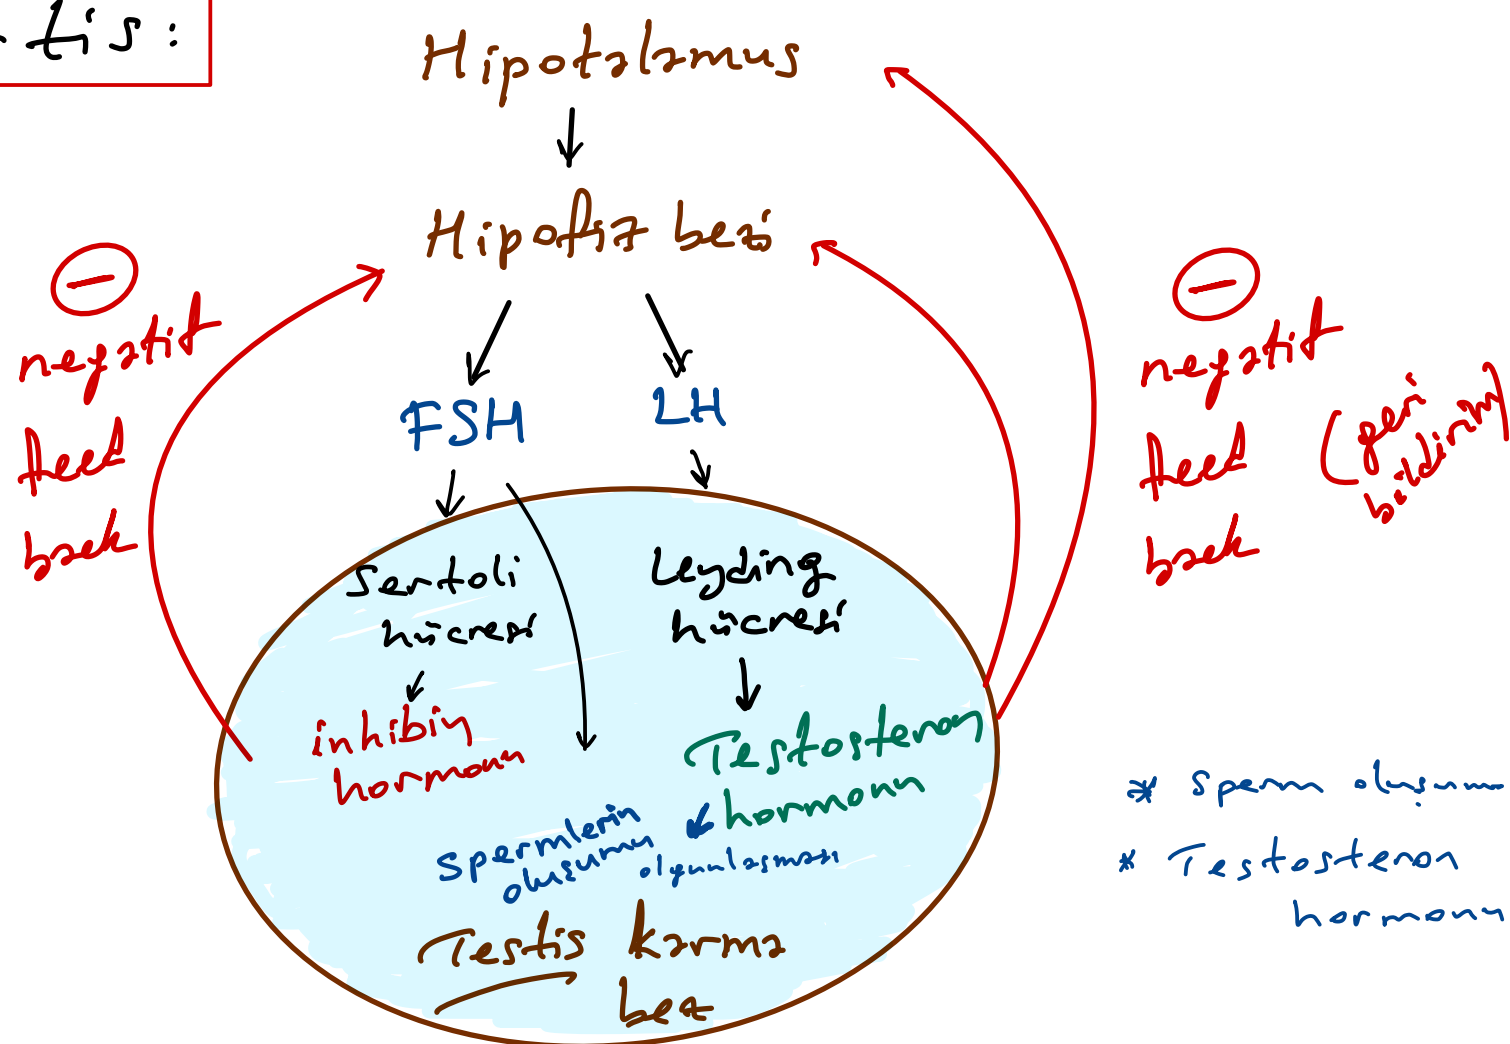 tis:
Hipotalamus
Hipofiz bezi
negatif
feed
back
FSH
LH
negatif
feed
back
(geri
bildirim)
Sertoli
hücresi
Leyding
hücresi
inhibin
hormonu
Testosteron
hormonu
Spermlerin
oluşumu
olgunlaşması
Testis karma
bez
* Sperm oluşumu
* Testosteron
hormonu